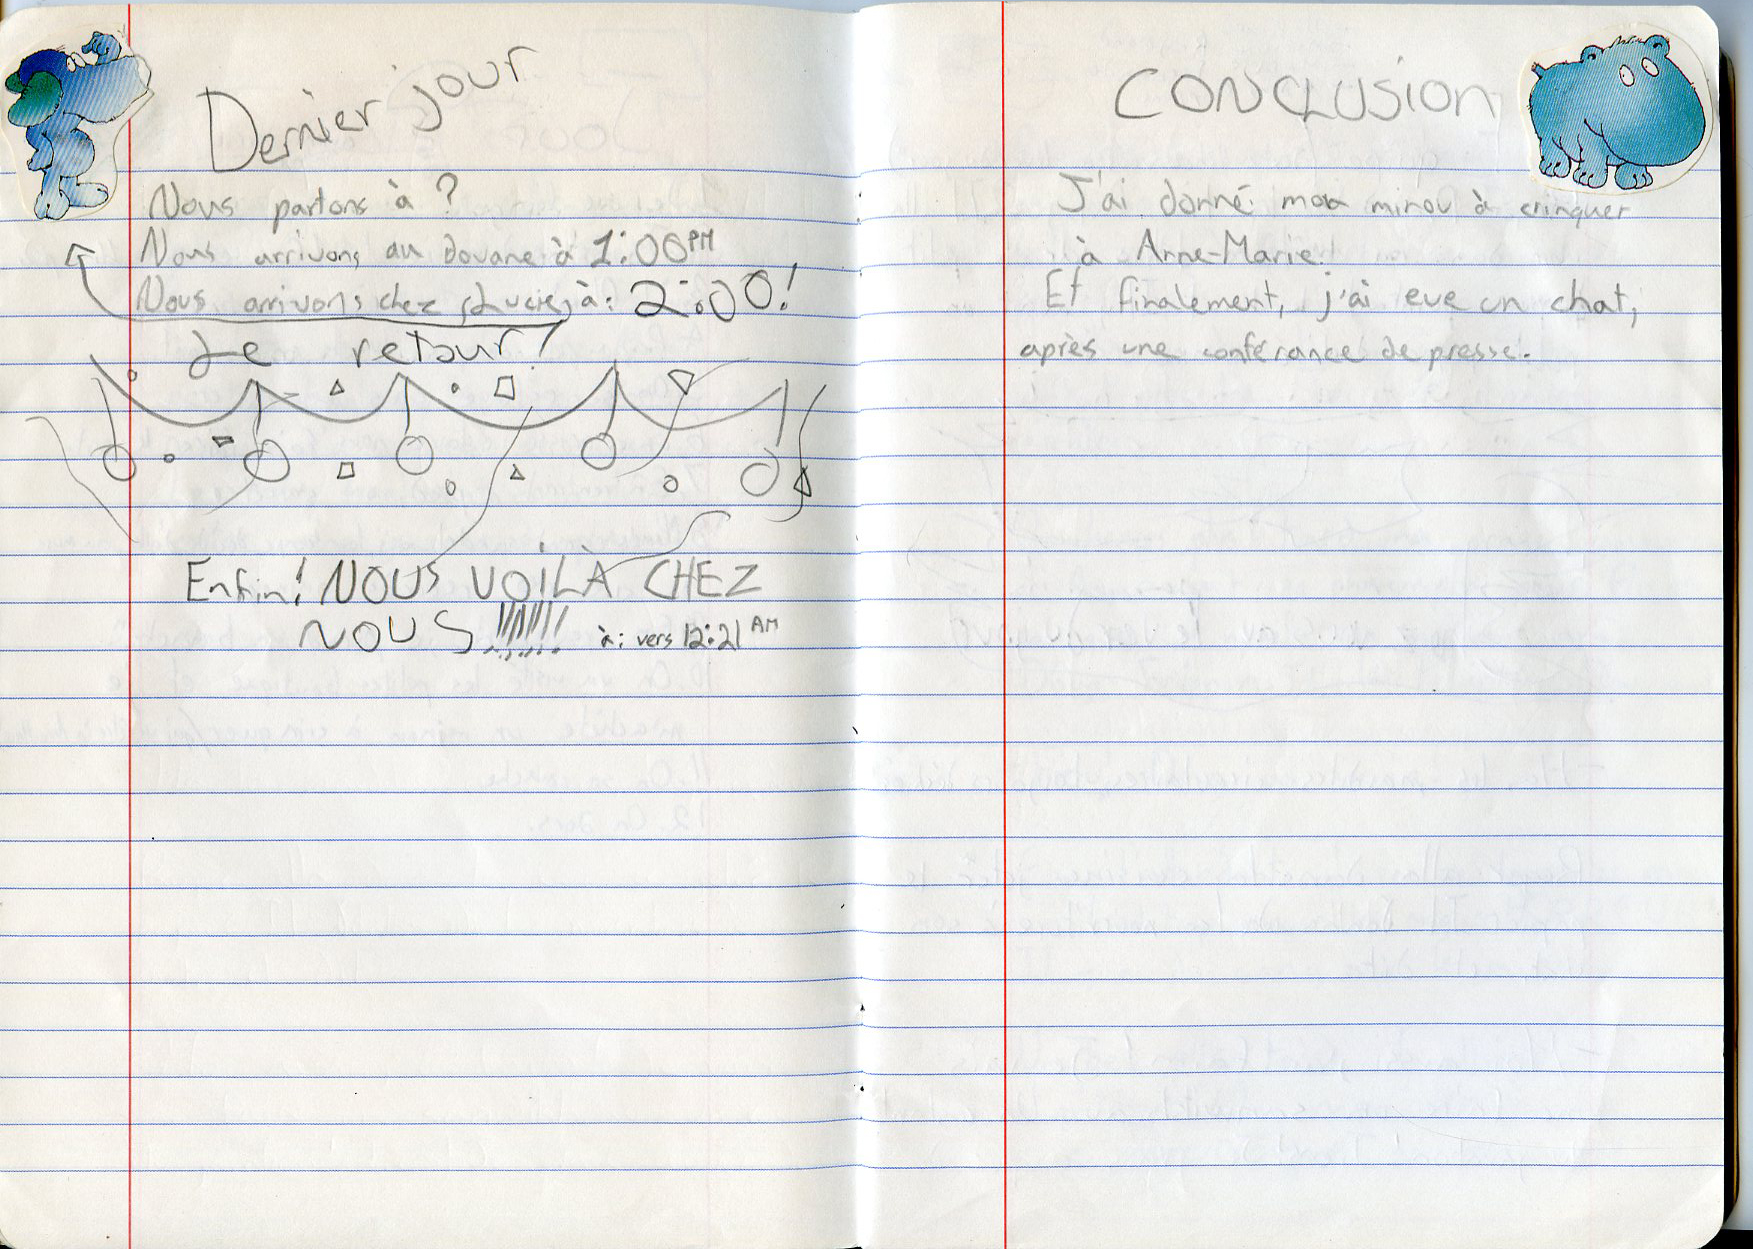 Dernier jour
Nous partons à ?
Nous arrivons au douane à 1:00 PM
Nous arrivons chez Lucie, à: 2:00!
Le retour!
Enfin! NOUS VOILÀ CHEZ
NOUS !!!!!!! à: vers 12:21 AM
CONCLUSION
J'ai donné mon minou à crinquer
à Anne-Marie.
Et finalement, j'ai eue un chat,
après une conférance de presse.